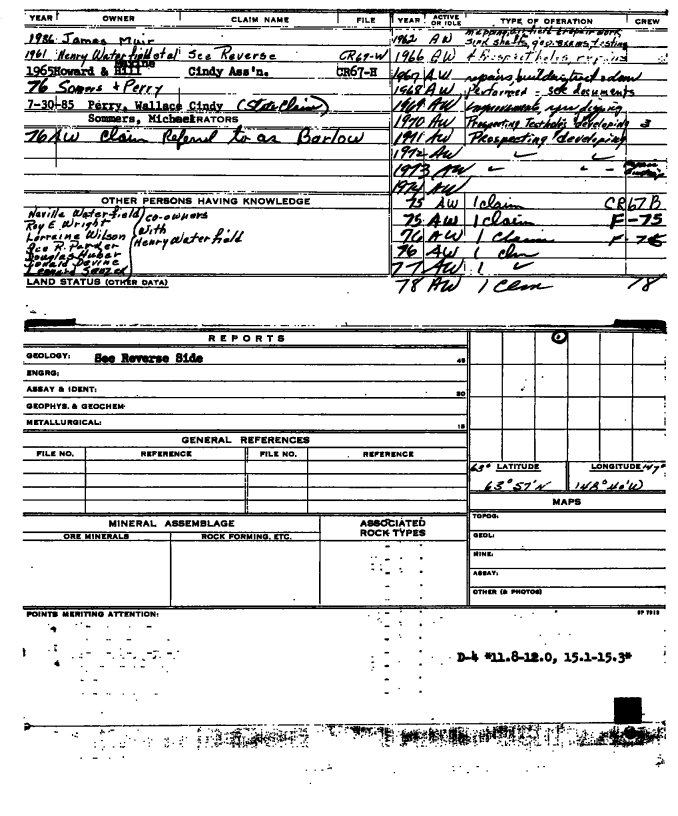 YEAR OWNER CLAIM NAME FILE
1986 James Muir
1961 Henry Waterfield et al See Reverse CR67-W
1965 Howard & Hill Cindy Ass'n. CR67-H
76 Somers & Perry
7-30-85 Perry, Wallace Cindy (State Claim)
Sommers, Michael
ERATORS
76 AW Claim Referred to as Barlow
OTHER PERSONS HAVING KNOWLEDGE
Neville Waterfield
Roy E. Wright
Lorraine Wilson
R. Parker
Douglas Huber
Donald Devine
Leonard
co-owners
with
Henry Waterfield
LAND STATUS (OTHER DATA)
YEAR ACTIVE OR IDLE TYPE OF OPERATION CREW
1962 AW mapping, repair work,
sink shafts, testing
1966 AW
1967 AW repairs, building, road
1968 AW performed - see documents
1969 AW improvements, digging
1970 AW Prospecting Testholes developing 3
1971 AW Prospecting developing
1972 AW
1973 AW
1974 AW
75 AW 1 claim CR67B
75 AW 1 claim F-75
76 AW 1 Claim F-75
76 AW 1 clm
77 AW 1
78 AW 1 Clm 78
REPORTS
GEOLOGY: See Reverse Side 45
ENGRG:
ASSAY & IDENT: 20
GEOPHYS. & GEOCHEM·
METALLURGICAL: 15
GENERAL REFERENCES
FILE NO. REFERENCE FILE NO. REFERENCE
63° LATITUDE LONGITUDE 147°
63°57'N 148°40'W
MAPS
TOPOG:
GEOL:
MINE:
ASSAY:
OTHER (& PHOTOS)
MINERAL ASSEMBLAGE
ORE MINERALS ROCK FORMING, ETC.
ASSOCIATED
ROCK TYPES
POINTS MERITING ATTENTION:
SP 7913
D-4 *11.8-12.0, 15.1-15.3*